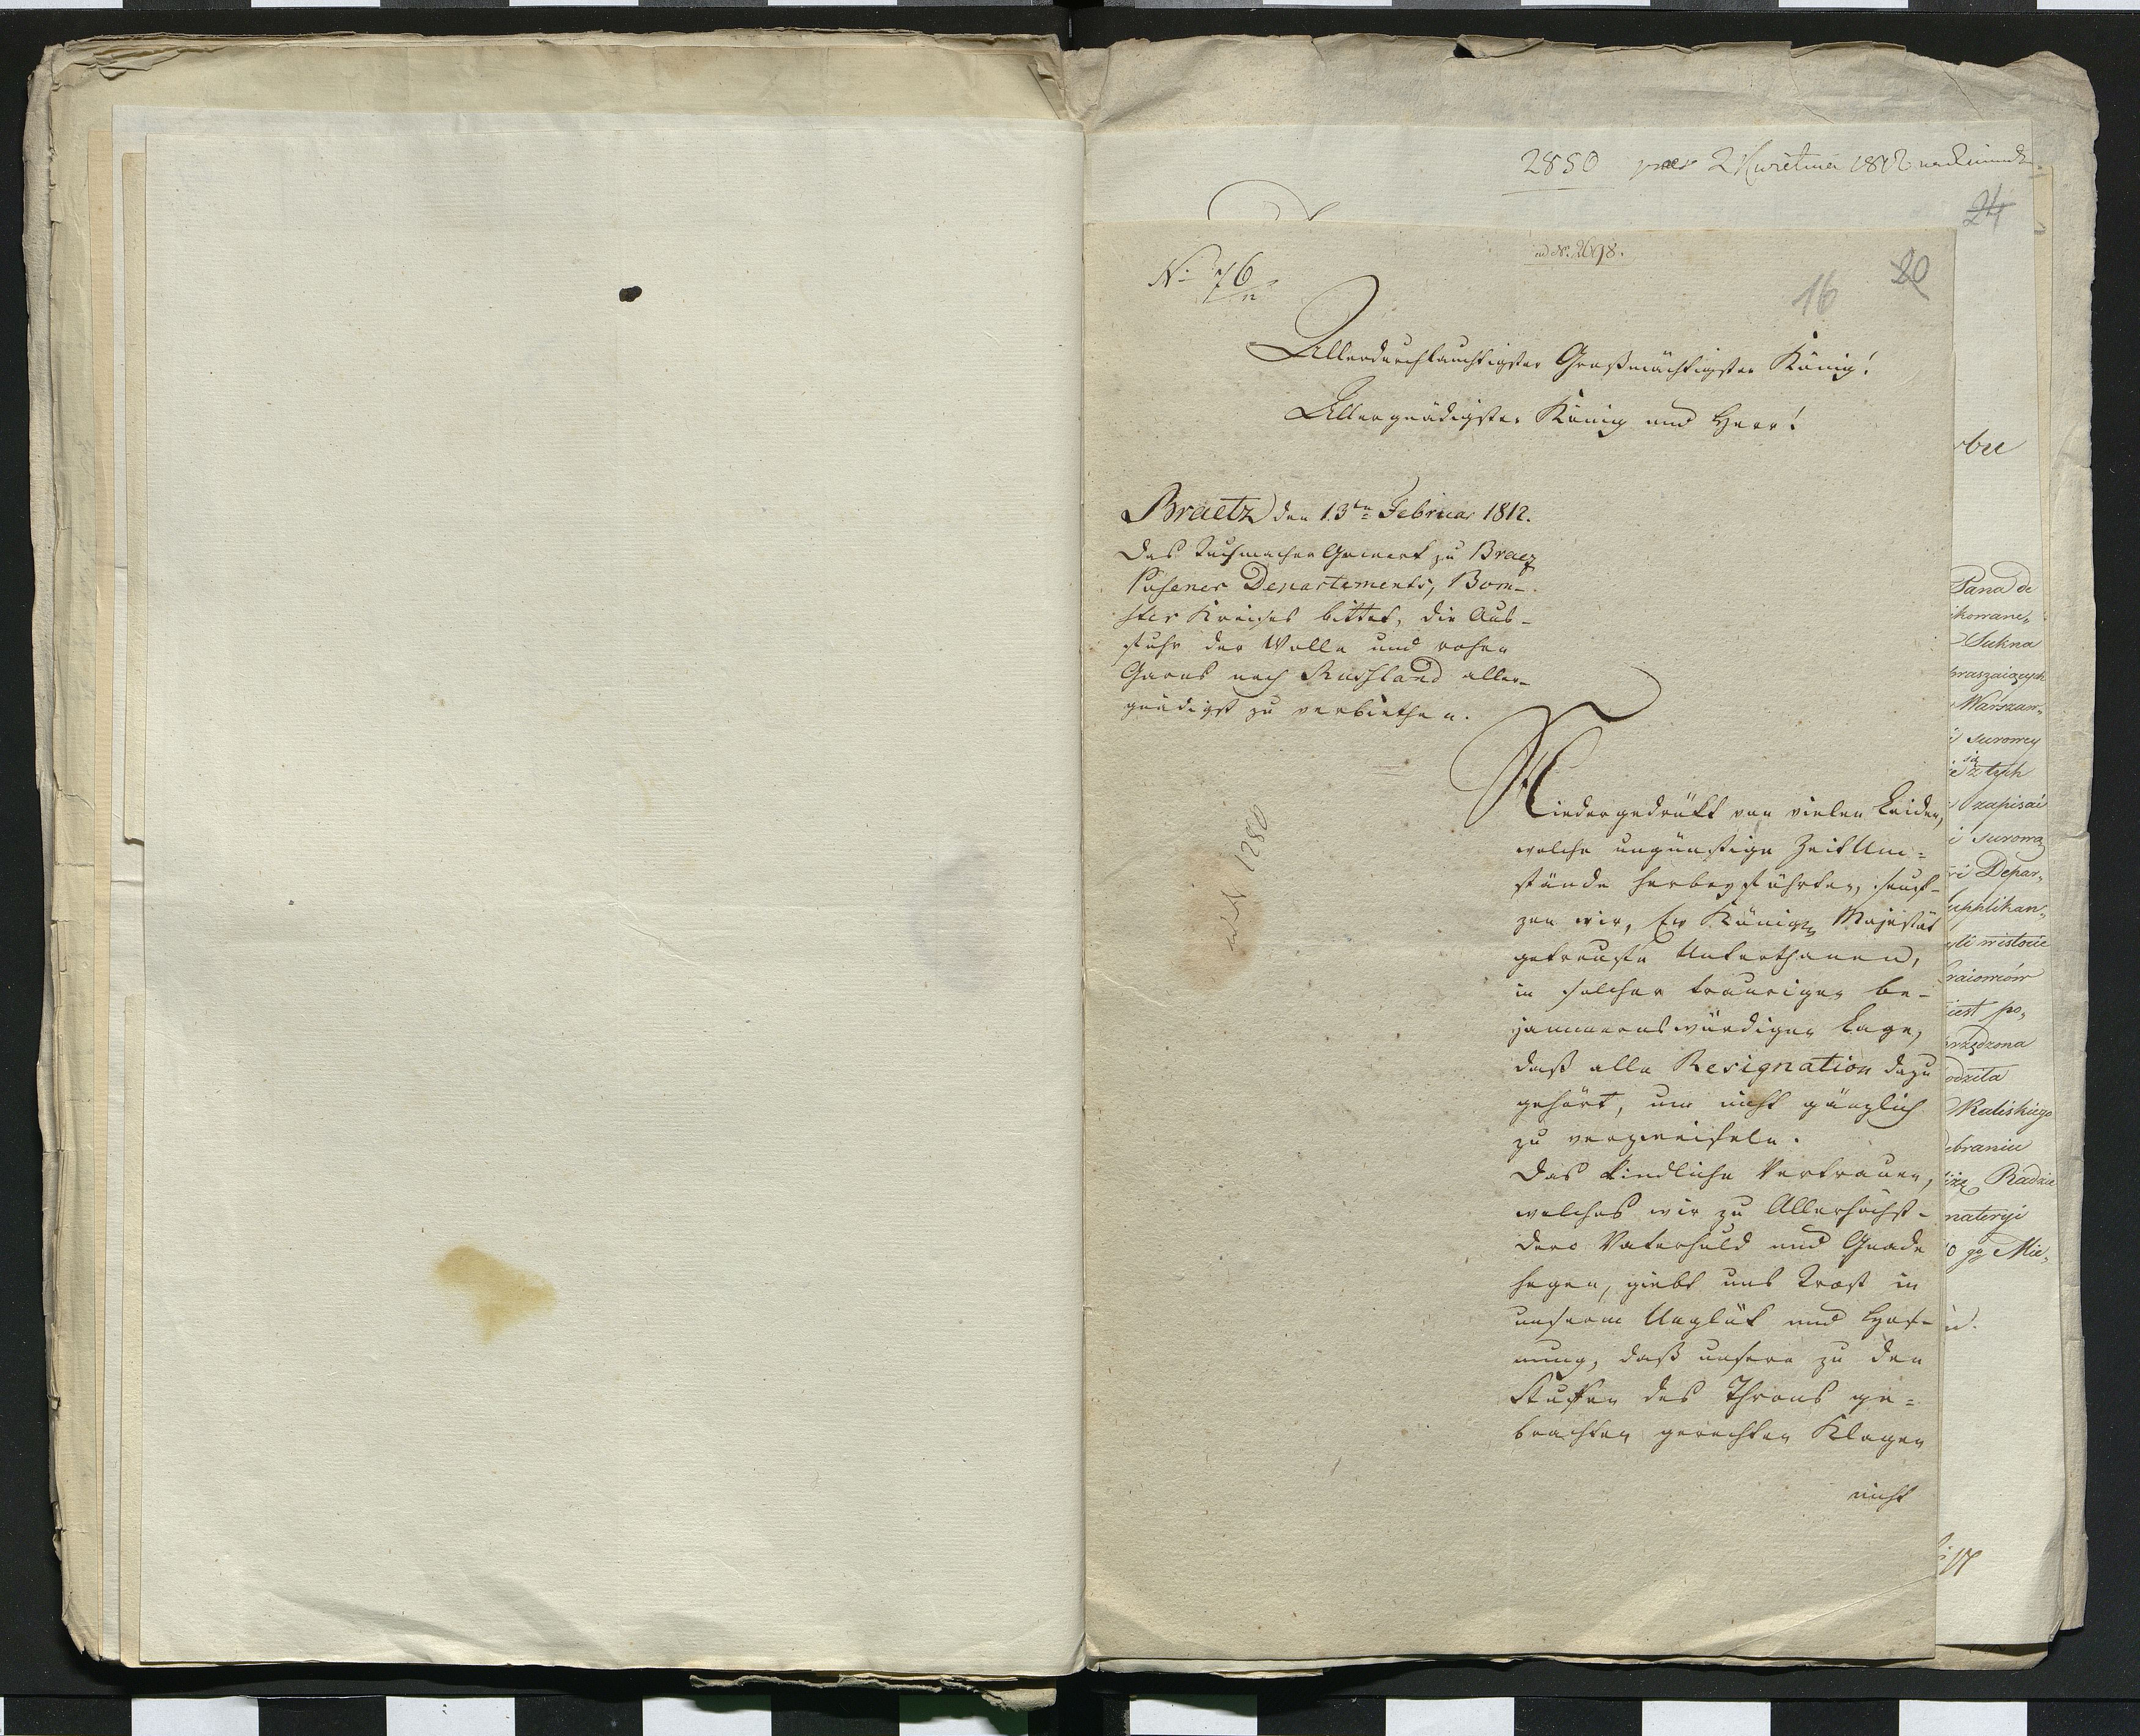 2850 2 Kwietnia 1812
24
ad N. 2698.
N: 76
20
16
Allerdurchlauchtigster Großmächtigster König!
Allergnädigster König und Herr!
Braetz den 13ten Februar 1812.
Das Tuchmacher Gewerk zu Braez
Posener Departements, Bom-
ster Kreises bittet, die Aus-
fuhr der Wolle und rohen
Garns nach Russland aller-
gnädigst zu verbiethen.
Niedergedrükt von vielen Leiden,
welche ungünstige Zeit Um-
stände herbeyführten, seuf-
zen wir, Ew Königl Majestät
getreuste Unterthanen,
in solcher traurigen be-
jammernswürdigen Lage,
daß alle Resignation dazu
gehört, um nicht gänzlich
zu verzweifeln.
Das kindliche Vertrauen,
welches wir zu Allerhöchst-
dero Vaterhuld und Gnade
hegen, giebt uns Trost in
unserm Unglük und Hof-
nung, daß unsere zu den
Stuffen des Throns ge-
brachten gerechten Klagen
nicht
1280
Pana de
ikowane
Sukna
braszaiących
Warszaw
i surowey
się
z tych
zapisać
i surową
Depar
upplikan
wistocie
raiowców
iest po
rządzona
odziła
Kaliskiego
ebraniu
Radzie
materyi
o gg Mie